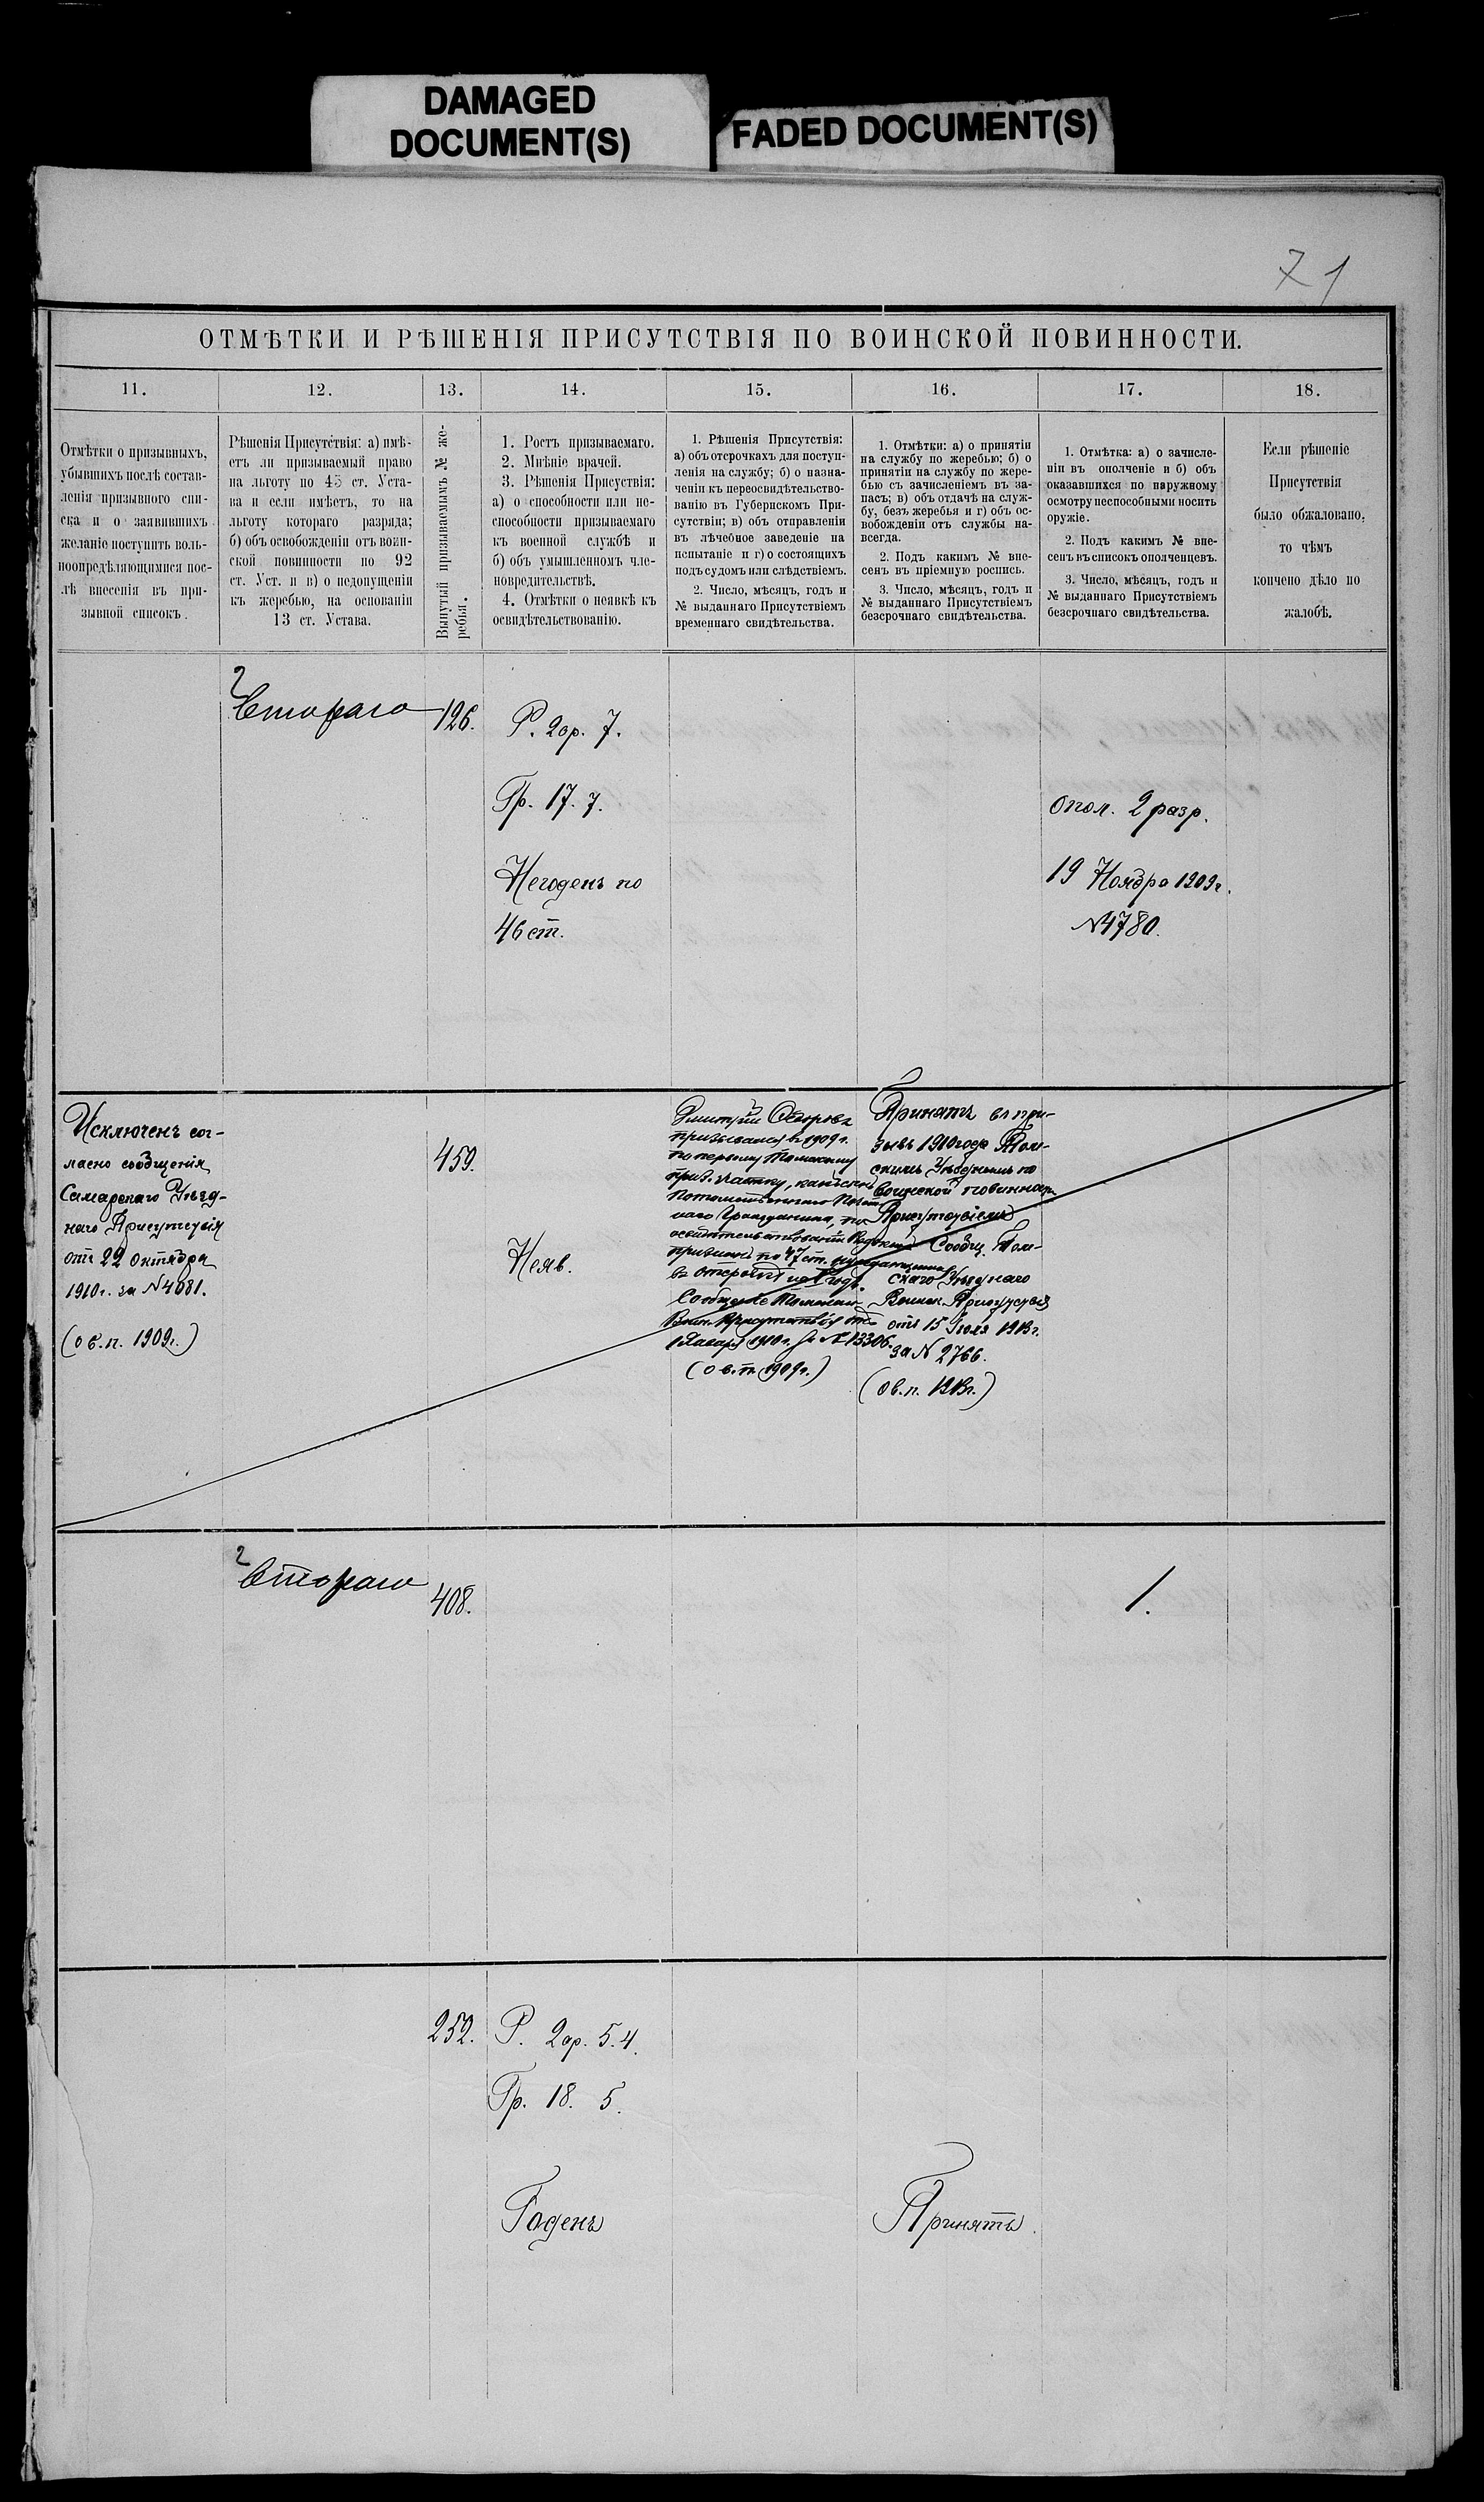 DAMAGED
DOCUMENT(S)
FADED DOCUMENT(S)
71
ОТМѢТКИ И РѢШЕНІЯ ПРИСУТСТВІЯ ПО ВОИНСКОЙ ПОВИННОСТИ.
11.
12.
13.
14.
15.
16.
17.
18.
Отмѣтки о призывныхъ,
убывшихъ послѣ состав-
ленія призывного спи-
ска и о заявившихъ
желаніе поступить воль-
ноопредѣляющимися пос-
лѣ внесенія въ при-
зывной списокъ.
Рѣшенія Присутствія: а) имѣ-
етъ ли призываемый право
на льготу по 45 ст. Уста-
ва и если имѣетъ, то на
льготу котораго разряда;
б) объ освобожденіи отъ воин-
ской повинности по 92
ст. Уст. и в) о недопущеніи
къ жеребью, на основаніи
13 ст. Устава.
Вынутый призываемымъ № же-
ребья.
1. Ростъ призываемаго.
2. Мнѣніе врачей.
3. Рѣшенія Присуствія:
а) о способности или не-
способности призываемаго
къ военной службѣ и
б) объ умышленномъ чле-
новредительствѣ.
4. Отмѣтки о неявкѣ къ
освидѣтельствованію.
1. Рѣшенія Присутствія:
а) объ отсрочкахъ для поступ-
ленія на службу; б) о назна-
ченіи къ переосвидѣтельство-
ванію въ Губернскомъ При-
сутствіи; в) объ отправленіи
въ лѣчебное заведеніе на
испытаніе и г) о состоящихъ
подъ судомъ или слѣдствіемъ.
2. Число, мѣсяцъ, годъ и
№ выданнаго Присутствіемъ
временнаго свидѣтельства.
1. Отмѣтки: а) о принятіи
на службу по жеребью; б) о
принятіи на службу по жере-
бью съ зачисленіемъ въ за-
пасъ; в) объ отдачѣ на служ-
бу, безъ жеребья и г) объ ос-
вобожденіи отъ службы на-
всегда.
2. Подъ какимъ № вне-
сенъ въ пріемную роспись.
3. Число, мѣсяцъ, годъ и
№ выданнаго Присутствіемъ
безсрочнаго свидѣтельства.
1. Отмѣтка: а) о зачисле-
ніи въ ополченіе и б) объ
оказавшихся по наружному
осмотру неспособными носить
оружіе.
2. Подъ какимъ № вне-
сенъ въ списокъ ополченцевъ.
3. Число, мѣсяцъ, годъ и
№ выданнаго Присутствіемъ
безсрочнаго свидѣтельства.
Если рѣшеніе
Присутствія
было обжаловано,
то чѣмъ
кончено дѣло по
жалобѣ.
2
Втораго
126.
Р. 2ар. 7.
Гр. 17. 7.
Негоденъ по
46 ст.
Опол. 2 разр.
19 Ноября 1909г.
№4780.
Исключенъ сог-
ласно сообщенія
Самарскаго Уѣзд-
наго Присутствія
отъ 22 Октября
1910г. за №4081.
(о в.п. 1909г.)
459.
Неяв.
Дмитрій
призывался въ 1909г.
по первому Томскому
приз. участку, какъ сынъ
Потомственнаго Почет-
наго Гражданина, по
освидѣтельствованіи
признанъ по 47 ст.
въ отсрочкѣ на 1 годъ.
Сообщеніе Томскаго
Воин. Присутствія отъ
1 Января 1910г. за №13306.
(о в.п. 1909г.)
Принятъ въ при-
зывъ 1910 года Том-
скимъ Уѣзднымъ по
воинской повинности
Присутствіемъ
Сообщ. Том-
скаго Уѣзднаго
Воинск. Присутствія
отъ 15 Іюля 1913г.
за № 2766.
(о в.п. 1913г.)
2
Втораго
408.
1.
252.
Р. 2ар. 5.4.
Гр. 18. 5.
Годенъ
Принятъ.